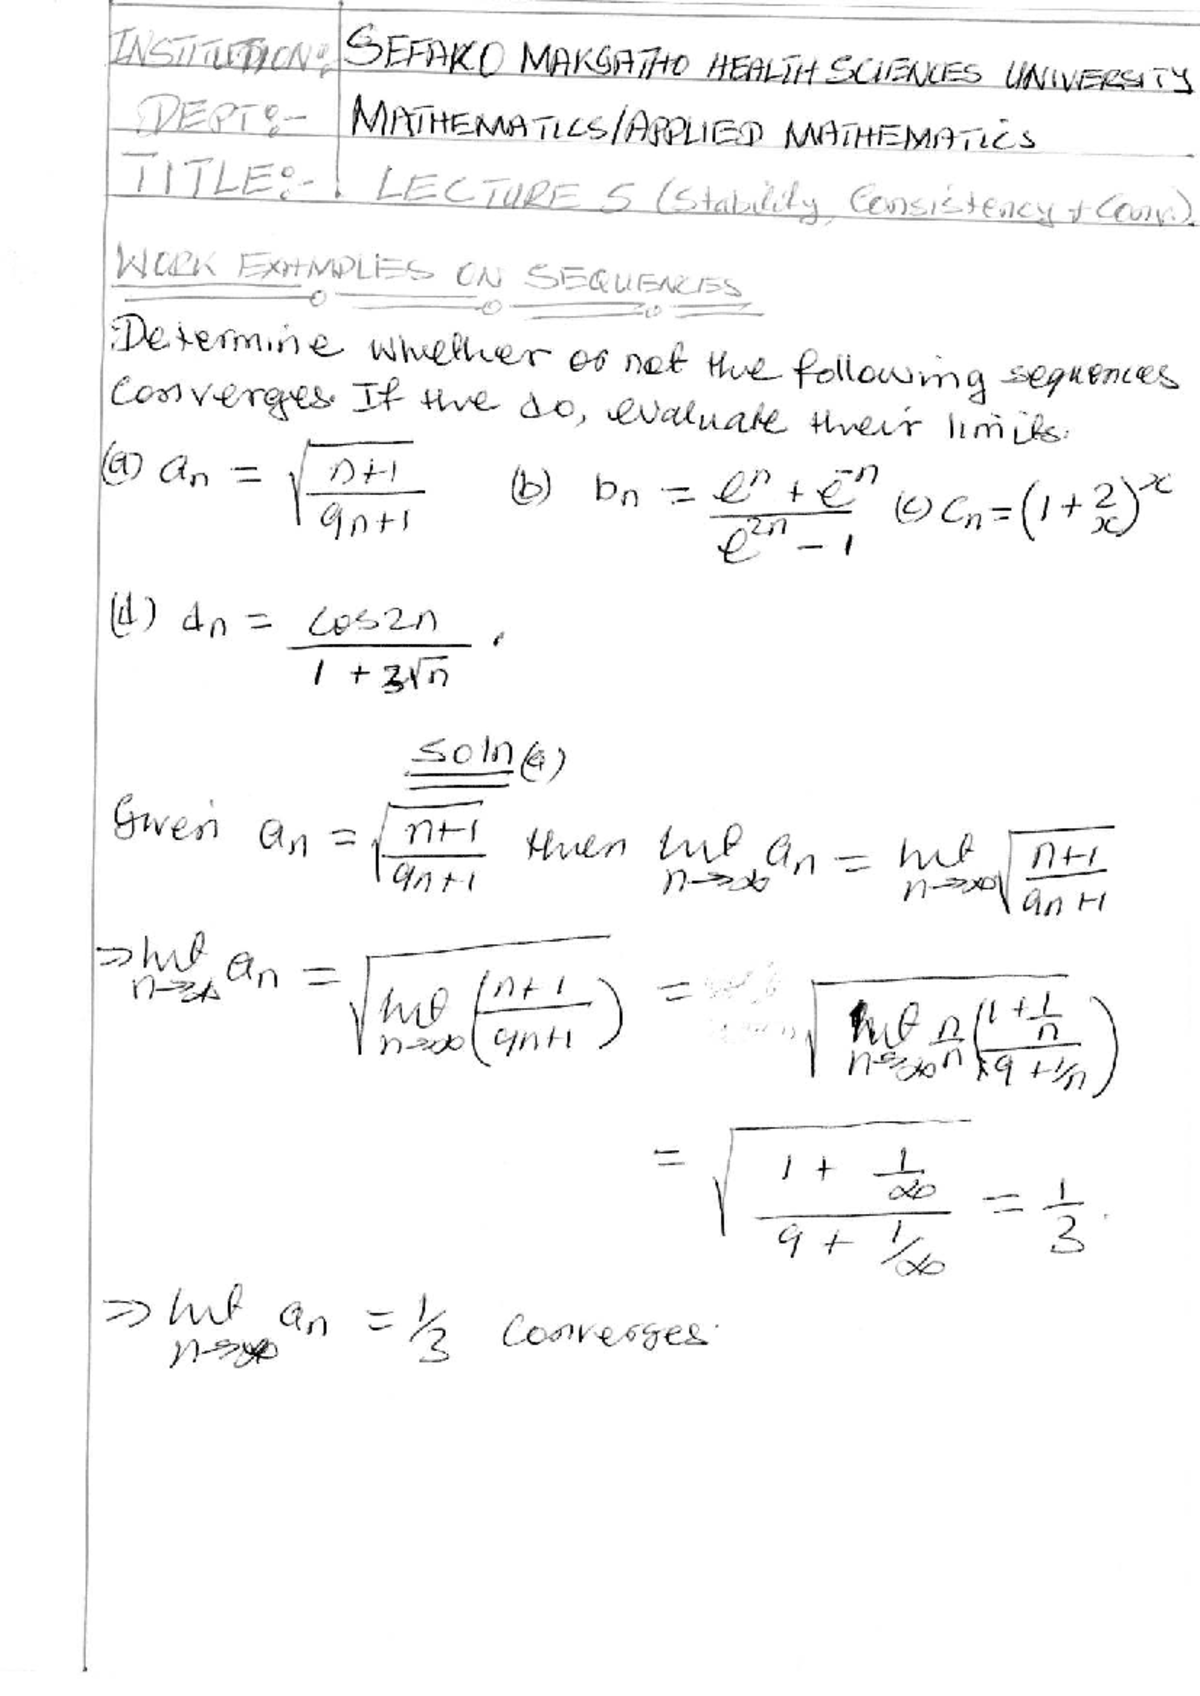 INSTITUTION:- SEFAKO MAKGATHO HEALTH SCIENCES UNIVERSITY
DEPT:- MATHEMATICS/APPLIED MATHEMATICS
TITLE:- LECTURE 5 (Stability, Consistency + Conv.).
WORK EXAMPLES ON SEQUENCES
Determine whether or not the following sequences
Converges. If the do, evaluate their limits.
(a) aₙ = √((n+1)/(9n+1)) (b) bₙ = (eⁿ + e⁻ⁿ)/(e²ⁿ - 1) (c) Cₙ = (1 + 2/x)ˣ
(d) dₙ = cos2n/(1 + 3√n).
soln (a)
Given aₙ = √((n+1)/(9n+1)) then lmt n→∞ aₙ = lmt n→∞ √((n+1)/(9n+1))
⇒ lmt n→∞ aₙ = √(lmt n→∞ ((n+1)/(9n+1))) = √(lmt n→∞ n/n ((1 + 1/n)/(9 + 1/n)))
= √((1 + 1/∞)/(9 + 1/∞)) = 1/3.
⇒ lmt n→∞ aₙ = 1/3 Converges.